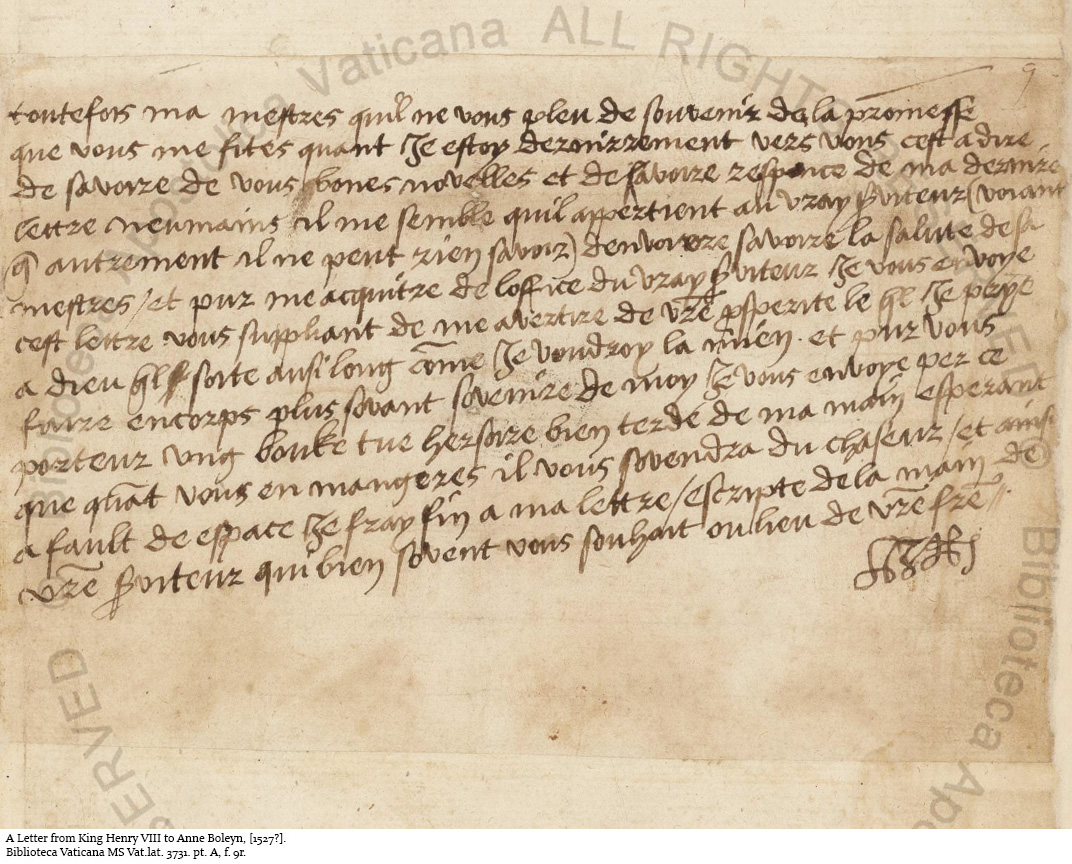 9
toutefois ma mestres quil ne vous pleu de souvenir de la promesse
que vous me fites quant Je estoy dernirrement vers vous cest a dire
de savoire de vous bones novelles et de savoire responce de ma dernire
lettre neumains il me semble quil appertient au vray serviteur (voiant
q autrement il ne peut rien savoir) denvoiere savoire la salute de sa
mestres / et pur me acquitre de loffice du vray serviteur Je vous envoye
cest lettre vous suppliant de me avertire de vre psperite le ql Je prye
a dieu ql soite ausi long cōme Je voudroy la mien. et pur vous
faire encorps plus sovant sovenire de moy Je vous envoye per ce
porteur ung bouke tue hersoire bien terde de ma main esperant
que quāt vous en mangeres il vous sovendra du chaseur / et ainsi
a fault de espace Je fray fin a ma lettre / escripte de la main de
vre serviteur qui bien sovent vous souhait ou lieu de vre frē //
Biblioteca Vaticana ALL RIGHTS RESERVED ©
Biblioteca Apo
A Letter from King Henry VIII to Anne Boleyn, [1527?].
Biblioteca Vaticana MS Vat.lat. 3731. pt. A, f. 9r.